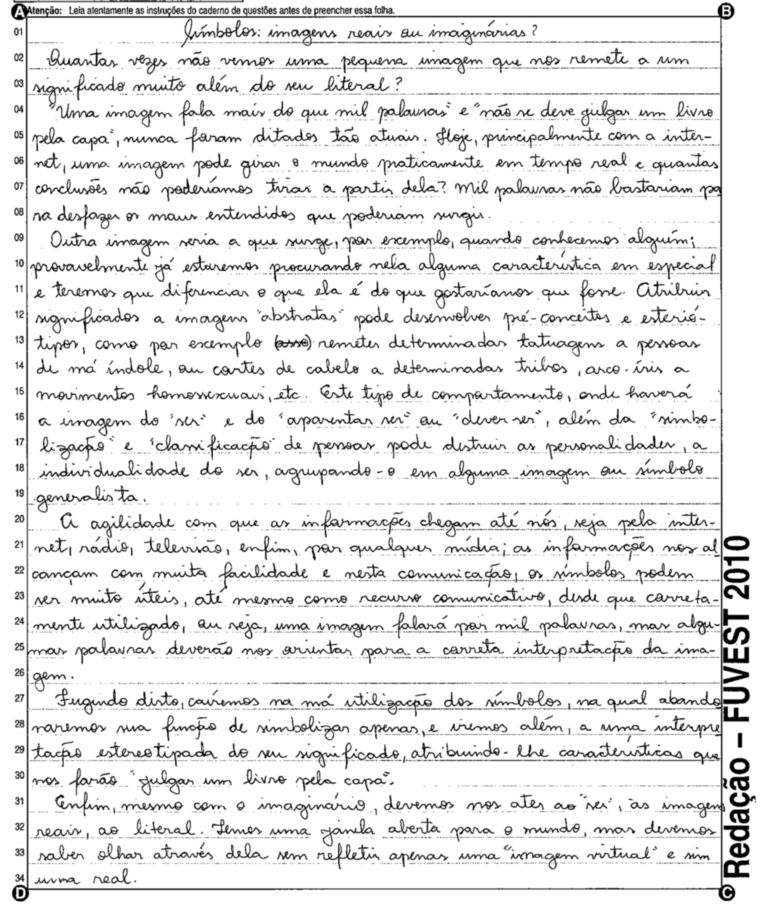 A Atenção: Leia atentamente as instruções do caderno de questões antes de preencher essa folha. B
01 Símbolos: imagens reais ou imaginárias?
02 Quantas vezes não vemos uma pequena imagem que nos remete a um
03 significado muito além do seu literal?
04 "Uma imagem fala mais do que mil palavras" e "não se deve julgar um livro
05 pela capa", nunca foram ditados tão atuais. Hoje, principalmente com a inter-
06 net, uma imagem pode girar o mundo praticamente em tempo real e quantas
07 conclusões não poderíamos tirar a partir dela? Mil palavras não bastariam pa
08 ra desfazer os maus entendidos que poderiam surgir.
09 Outra imagem seria a que surge, por exemplo, quando conhecemos alguém;
10 provavelmente já estaremos procurando nela alguma característica em especial
11 e teremos que diferenciar o que ela é do que gostaríamos que fosse. Atribuir
12 significados a imagens "abstratas" pode desenvolver pré-conceitos e esterió-
13 tipos, como por exemplo (asso) remeter determinadas tatuagens a pessoas
14 de má índole, ou cortes de cabelo a determinadas tribos, arco-íris a
15 movimentos homossexuais, etc. Este tipo de comportamento, onde haverá
16 a imagem do "ser" e do "aparentar ser" ou "dever ser", além da "simbo-
17 lização" e "classificação" de pessoas pode destruir as personalidades, a
18 individualidade do ser, agrupando-o em alguma imagem ou símbolo
19 generalista.
20 A agilidade com que as informações chegam até nós, seja pela inter-
21 net, rádio, televisão, enfim, por qualquer mídia; as informações nos al
22 cançam com muita facilidade e nesta comunicação, os símbolos podem
23 ser muito úteis, até mesmo como recurso comunicativo, desde que correta-
24 mente utilizado, ou seja, uma imagem falará por mil palavras, mas algu-
25 mas palavras deverão nos orientar para a correta interpretação da ima-
26 gem.
27 Fugindo disto, cairemos na má utilização dos símbolos, na qual abando
28 naremos sua função de simbolizar apenas, e iremos além, a uma interpre
29 tação estereotipada do seu significado, atribuindo-lhe características que
30 nos farão "julgar um livro pela capa".
31 Enfim, mesmo com o imaginário, devemos nos ater ao "ser", às imagens
32 reais, ao literal. Temos uma janela aberta para o mundo, mas devemos
33 saber olhar através dela sem refletir apenas uma "imagem virtual" e sim
34 uma real.
D C
Redação – FUVEST 2010